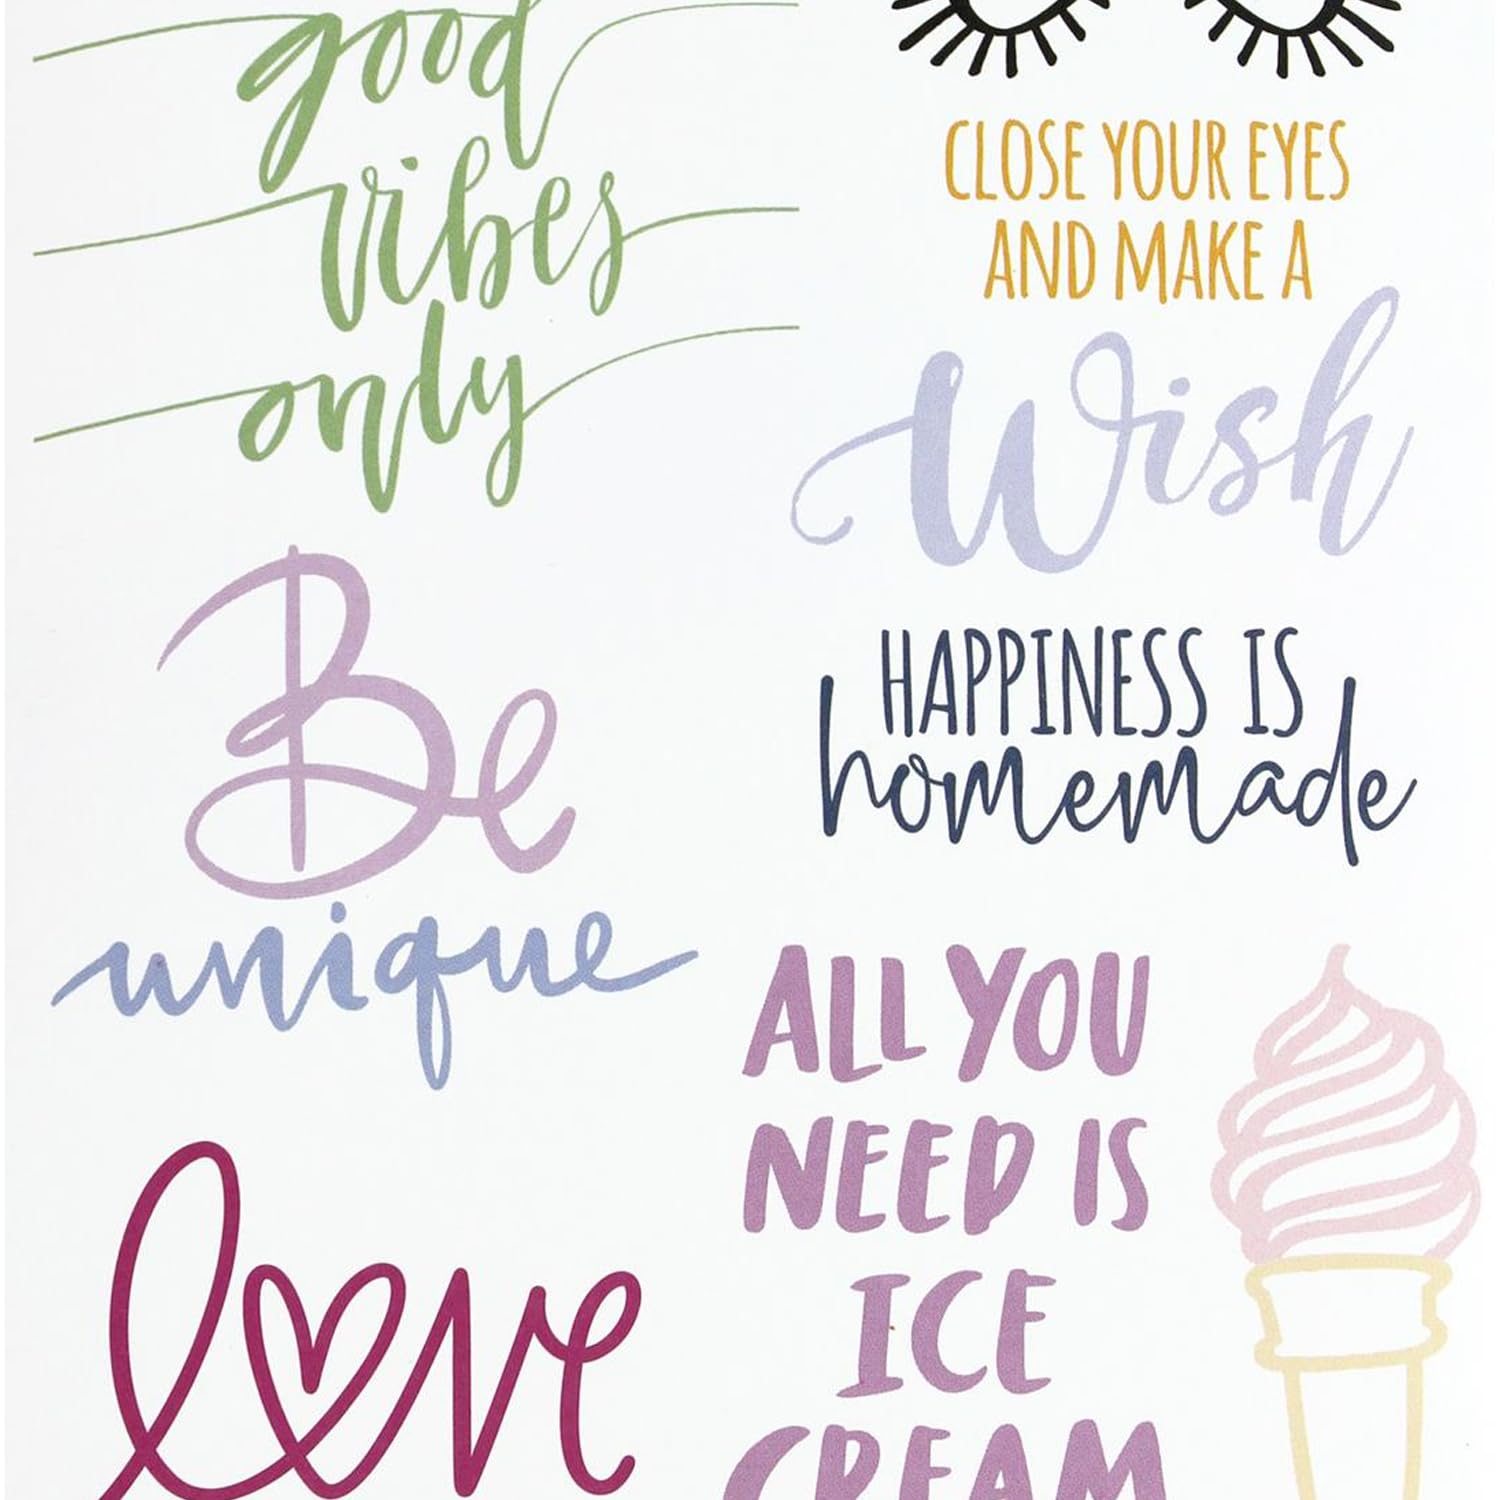 good
vibes
only
CLOSE YOUR EYES
AND MAKE A
Wish
Be
unique
HAPPINESS IS
homemade
love
ALL YOU
NEED IS
ICE
CREAM